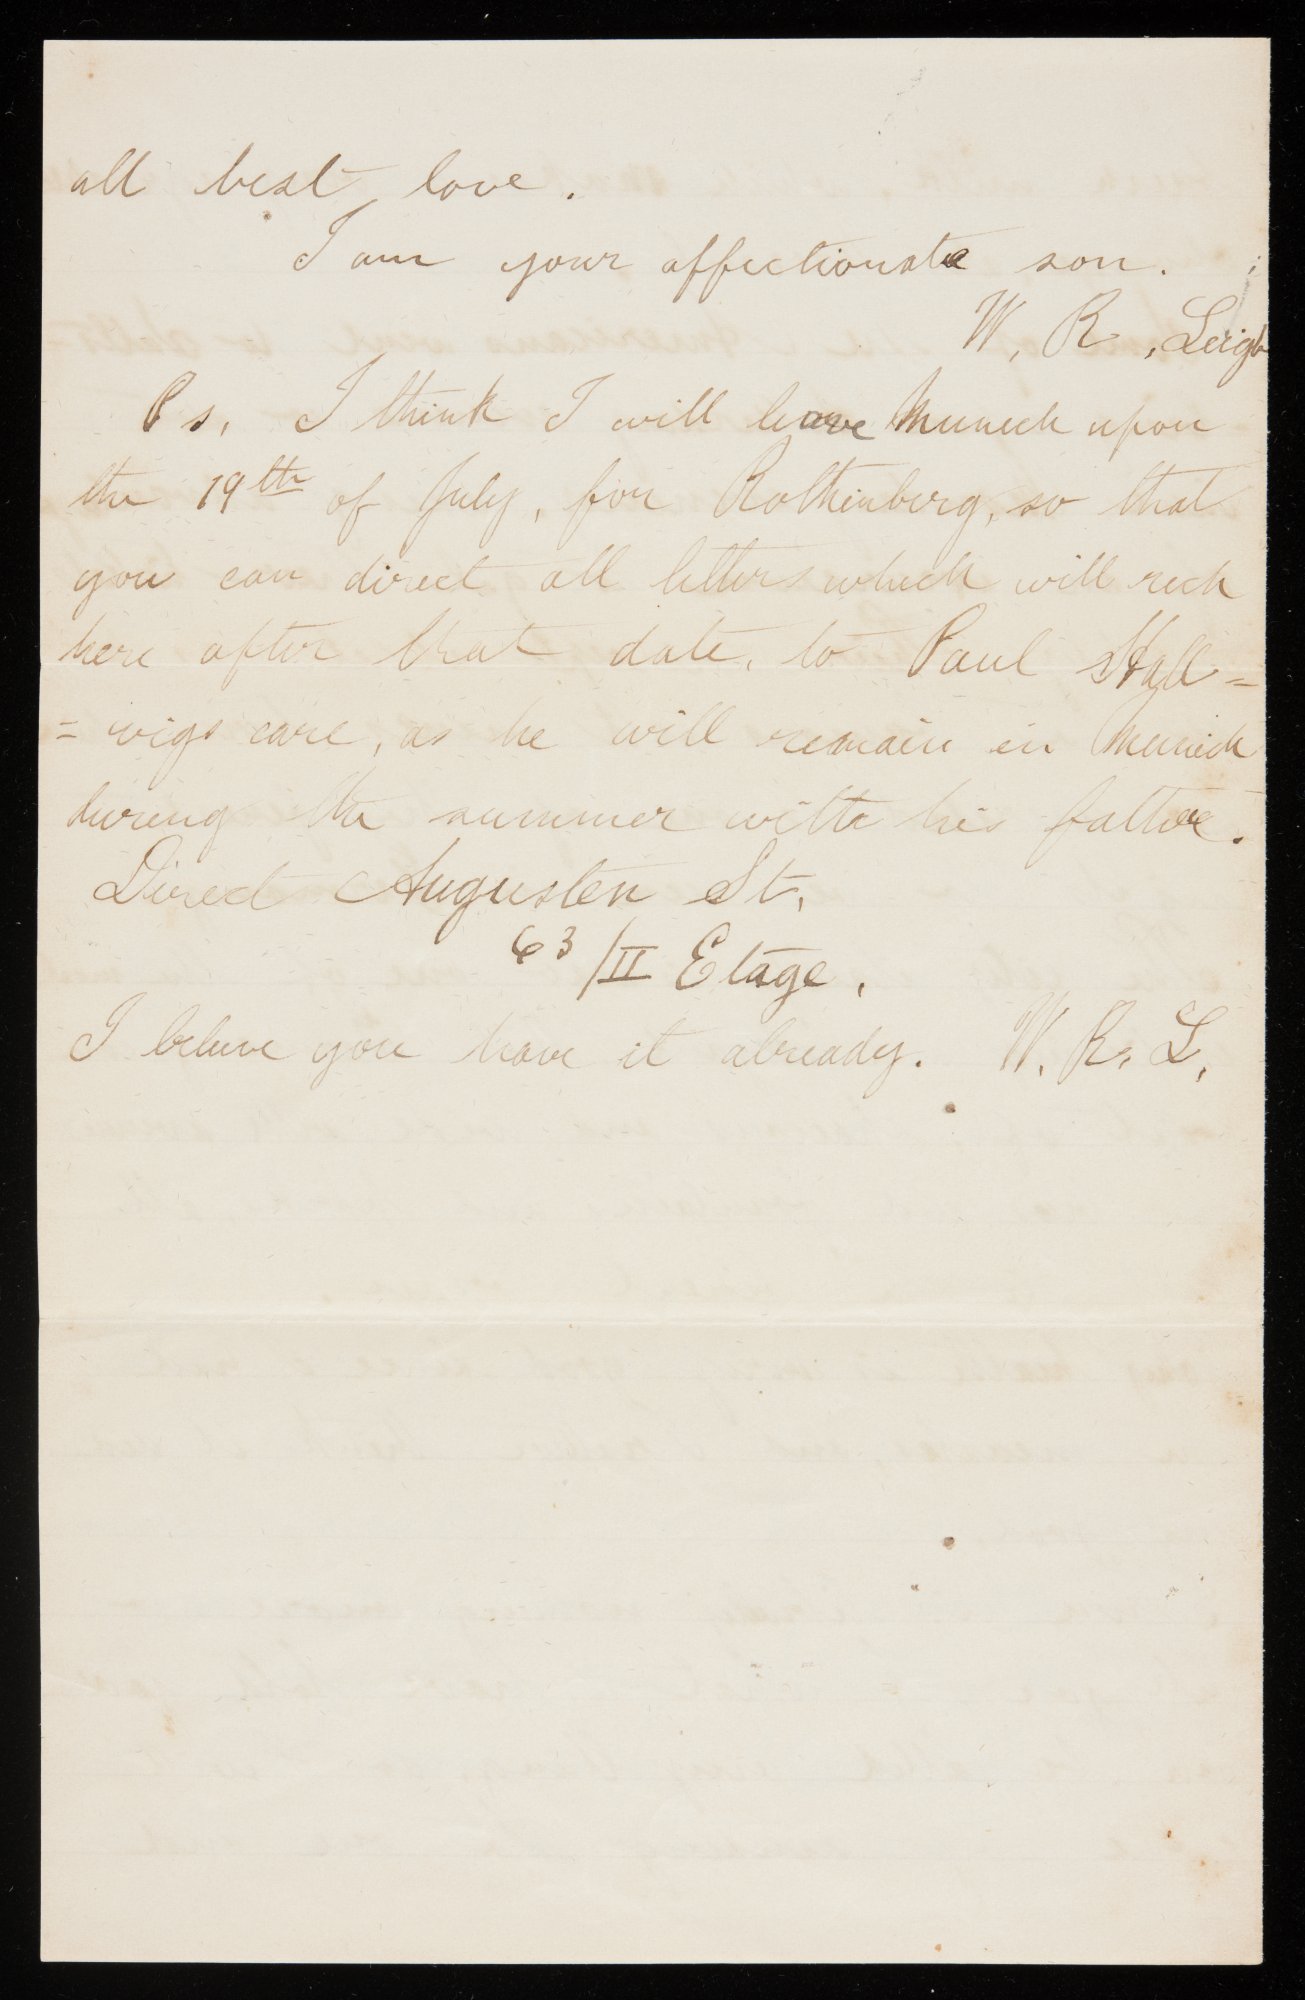 all best love.
I am your affectionate son.
W. R. Leigh
Ps. I think I will leave Munich upon
the 19th of July, for Rothenberg, so that
you can direct all letters which will rech
here after that date, to Paul Hall=
=wigs care, as he will remain in Munich
during the summer with his father.
Direct Augusten St.
63/II Etage.
I believe you have it already. W. R. L.